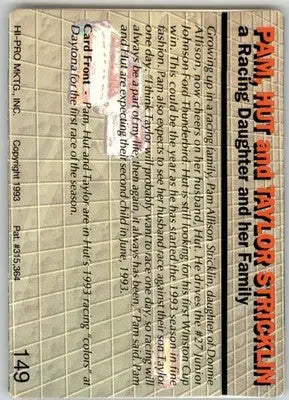 PAM, HUT and TAYLOR STRICKLIN
a Racing Daughter and her Family
Growing up in a racing family, Pam Allison Stricklin, daughter of Donnie
Allison, now cheers on her husband, Hut. He drives the #27 Junior
Johnson Ford Thunderbird. Hut is still looking for his first Winston Cup
win. This could be the year as he has started the 1993 season in fine
fashion. Pam also expects to see her husband race against their son Taylor
one day. "I think Taylor will probably want to race one day, so racing will
always be a part of my life then again, it always has been." Pam said. Pam
and Hut are expecting their second child in June, 1993.
Card Front - Pam, Hut and Taylor are in Hut's 1993 racing "colors" at
Daytona for the first race of the season.
HI-PRO MKTG., INC. Copyright 1993 Pat. #315,364 149